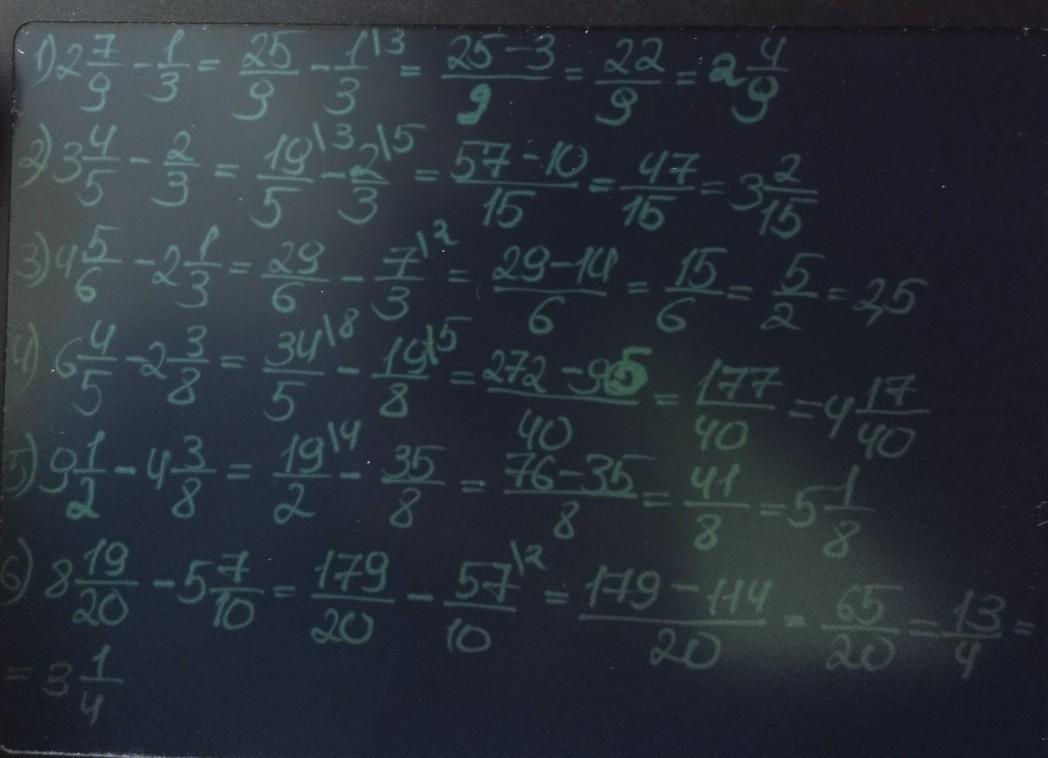 1) 2 7/9 - 1/3 = 25/9 - 1/3 \3 = (25-3)/9 = 22/9 = 2 4/9
2) 3 4/5 - 2/3 = 19/5 \3 - 2/3 \5 = (57-10)/15 = 47/15 = 3 2/15
3) 4 5/6 - 2 1/3 = 29/6 - 7/3 \2 = (29-14)/6 = 15/6 = 5/2 = 2,5
4) 6 4/5 - 2 3/8 = 34/5 \8 - 19/8 \5 = (272-95)/40 = 177/40 = 4 17/40
5) 9 1/2 - 4 3/8 = 19/2 \4 - 35/8 = (76-35)/8 = 41/8 = 5 1/8
6) 8 19/20 - 5 7/10 = 179/20 - 57/10 \2 = (179-114)/20 = 65/20 = 13/4 =
= 3 1/4